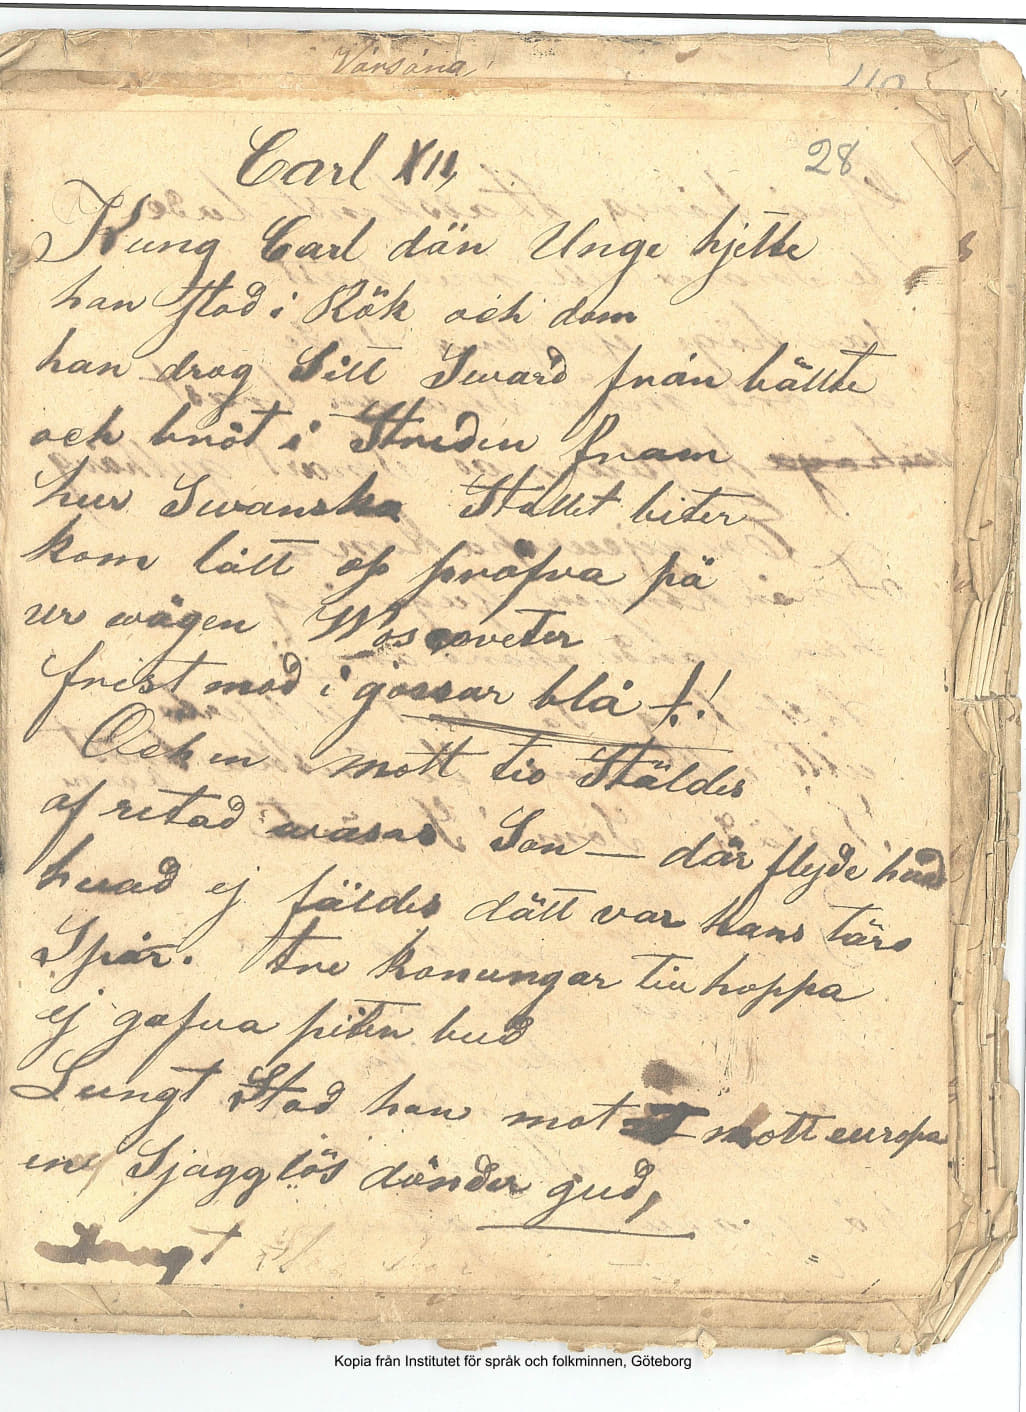 Vårsång
110
Carl XII,
28
Kung Carl dän Unge hjette
han stod i Rök och dam
han drog Sitt Sward från bältte
och bröt i Striden fram
hur Swanska Stallet biter
kom lått os pröfva på
ur wägen Moscoveter
frist mod i gossar blå !!
Och en mott tio Stäldes
af retad wasas Son — där flyde hvad
hvad ej fäldes dätt var hans lärs
Spår. tre konungar tiuhoppa
ej gafva piten bud
Lungt Stod han mot mott europa
en Sjägglös dånder gud,
Kopia från Institutet för språk och folkminnen, Göteborg